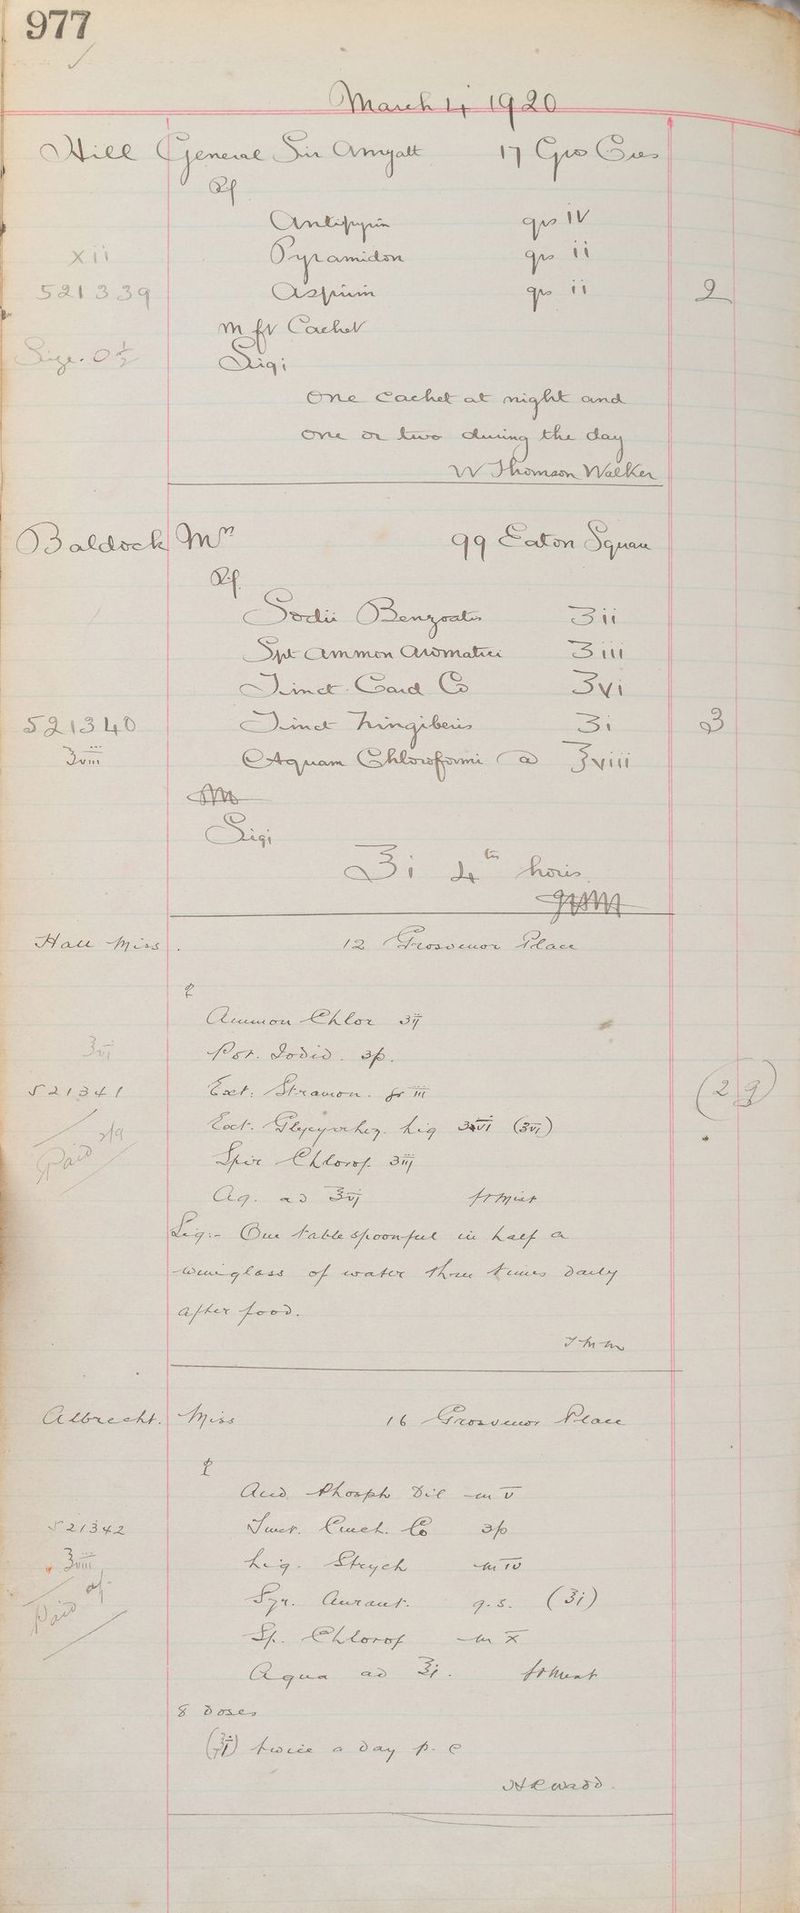 977
March 4 1920
Hill General Sir Amyatt 17 Gros Cres
Rx
Antipyrin grs IV
xii Pyramidon grs ii
521339 Aspirin grs ii 2
m ft Cachet
Size. 0½ Sig:
One cachet at night and
one or two during the day
W Thomson Walker
Baldock Mrs 99 Eaton Square
Rx
Sodii Benzoatis ʒii
Spt Ammon Aromatici ʒiii
Tinct Card Co ʒvi
521340 Tinct Zingiberis ʒi 3
℥viii Aquam Chloroformi ad ℥viii
M
Sig:
℥i 4tis horis
Hall Miss. 12 Grosvenor Place
Rx
Ammon Chlor ʒij
℥vi Pot. Iodid. ʒſs.
521341 Ext: Stramon. gr iii (2/9)
Paid 2/9 Ext. Glycyrrhiz. Liq ʒvi (ʒvi)
Spir Chlorof. ʒiij
Aq. ad ℥vj ft Mist
Sig:- One tablespoonful in half a
wineglass of water three times daily
after food.
Albrecht. Miss 16 Grosvenor Place
Rx
Acid Phosph Dil m v
521342 Tinct. Cinch. Co ʒſs
℥viii Liq. Strych m iv
Paid Syr. Aurant. q.s. (ʒi)
Sp. Chlorof m x
Aqua ad ℥i. ft Mist
8 Doses
(℥i) twice a day p.c